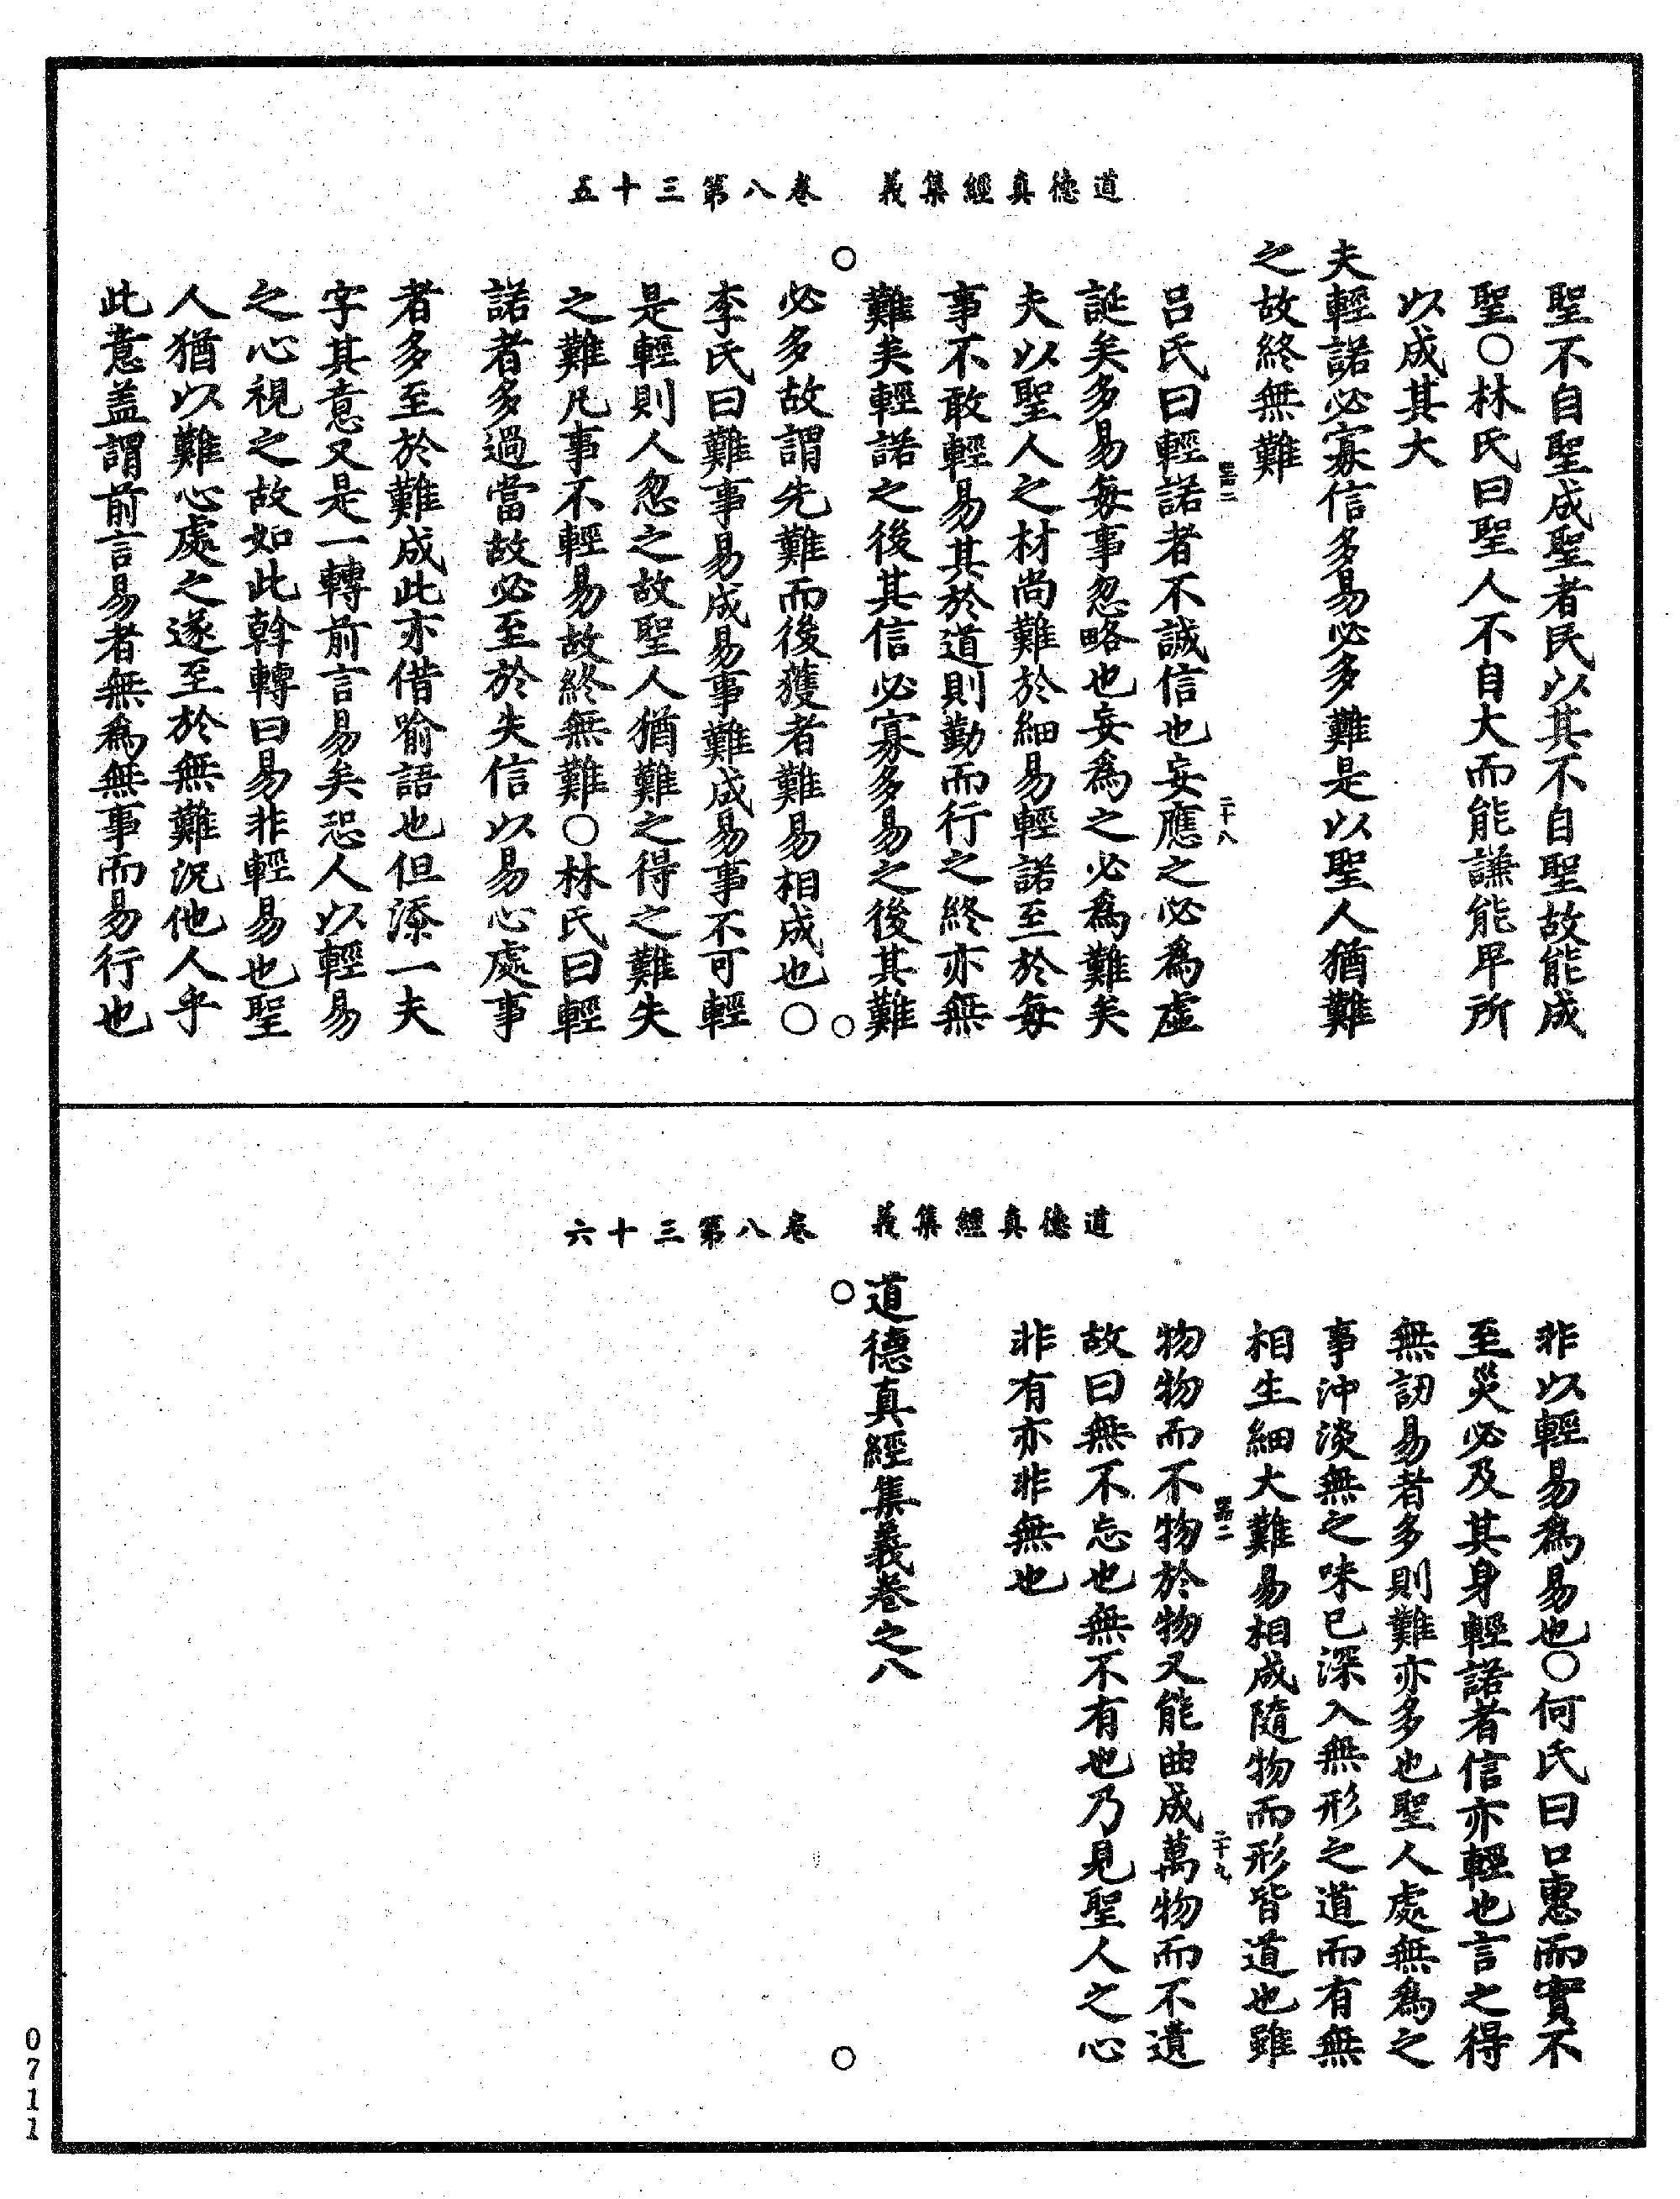 道德真經集義　卷八第三十五
聖不自聖成聖者民以其不自聖故能成
聖○林氏曰聖人不自大而能謙能卑所
以成其大
夫輕諾必寡信多易必多難是以聖人猶難
之故終無難
呂氏曰輕諾者不誠信也妄應之必為虛
誕矣多易每事忽略也妄為之必為難矣
夫以聖人之材尚難於細易輕諾至於每
事不敢輕易其於道則勤而行之終亦無
難矣輕諾之後其信必寡多易之後其難
必多故謂先難而後獲者難易相成也○
李氏曰難事易成易事難成易事不可輕
是輕則人忽之故聖人猶難之得之難失
之難凡事不輕易故終無難○林氏曰輕
諾者多過當故必至於失信以易心處事
者多至於難成此亦借喻語也但添一夫
字其意又是一轉前言易矣恐人以輕易
之心視之故如此斡轉曰易非輕易也聖
人猶以難心處之遂至於無難況他人乎
此意盖謂前言易者無為無事而易行也
二十八
道德真經集義　卷八第三十六
非以輕易為易也○何氏曰口惠而實不
至災必及其身輕諾者信亦輕也言之得
無訒易者多則難亦多也聖人處無為之
事沖淡無之味已深入無形之道而有無
相生細大難易相成隨物而形皆道也雖
物物而不物於物又能曲成萬物而不遺
故曰無不忘也無不有也乃見聖人之心
非有亦非無也
二十九
道德真經集義卷之八
0711